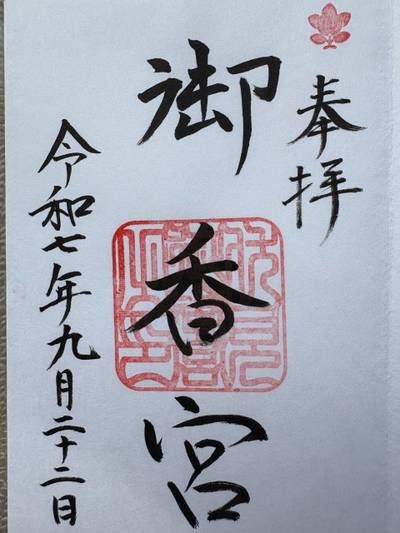 奉拝
御香宮
令和七年九月二十二日